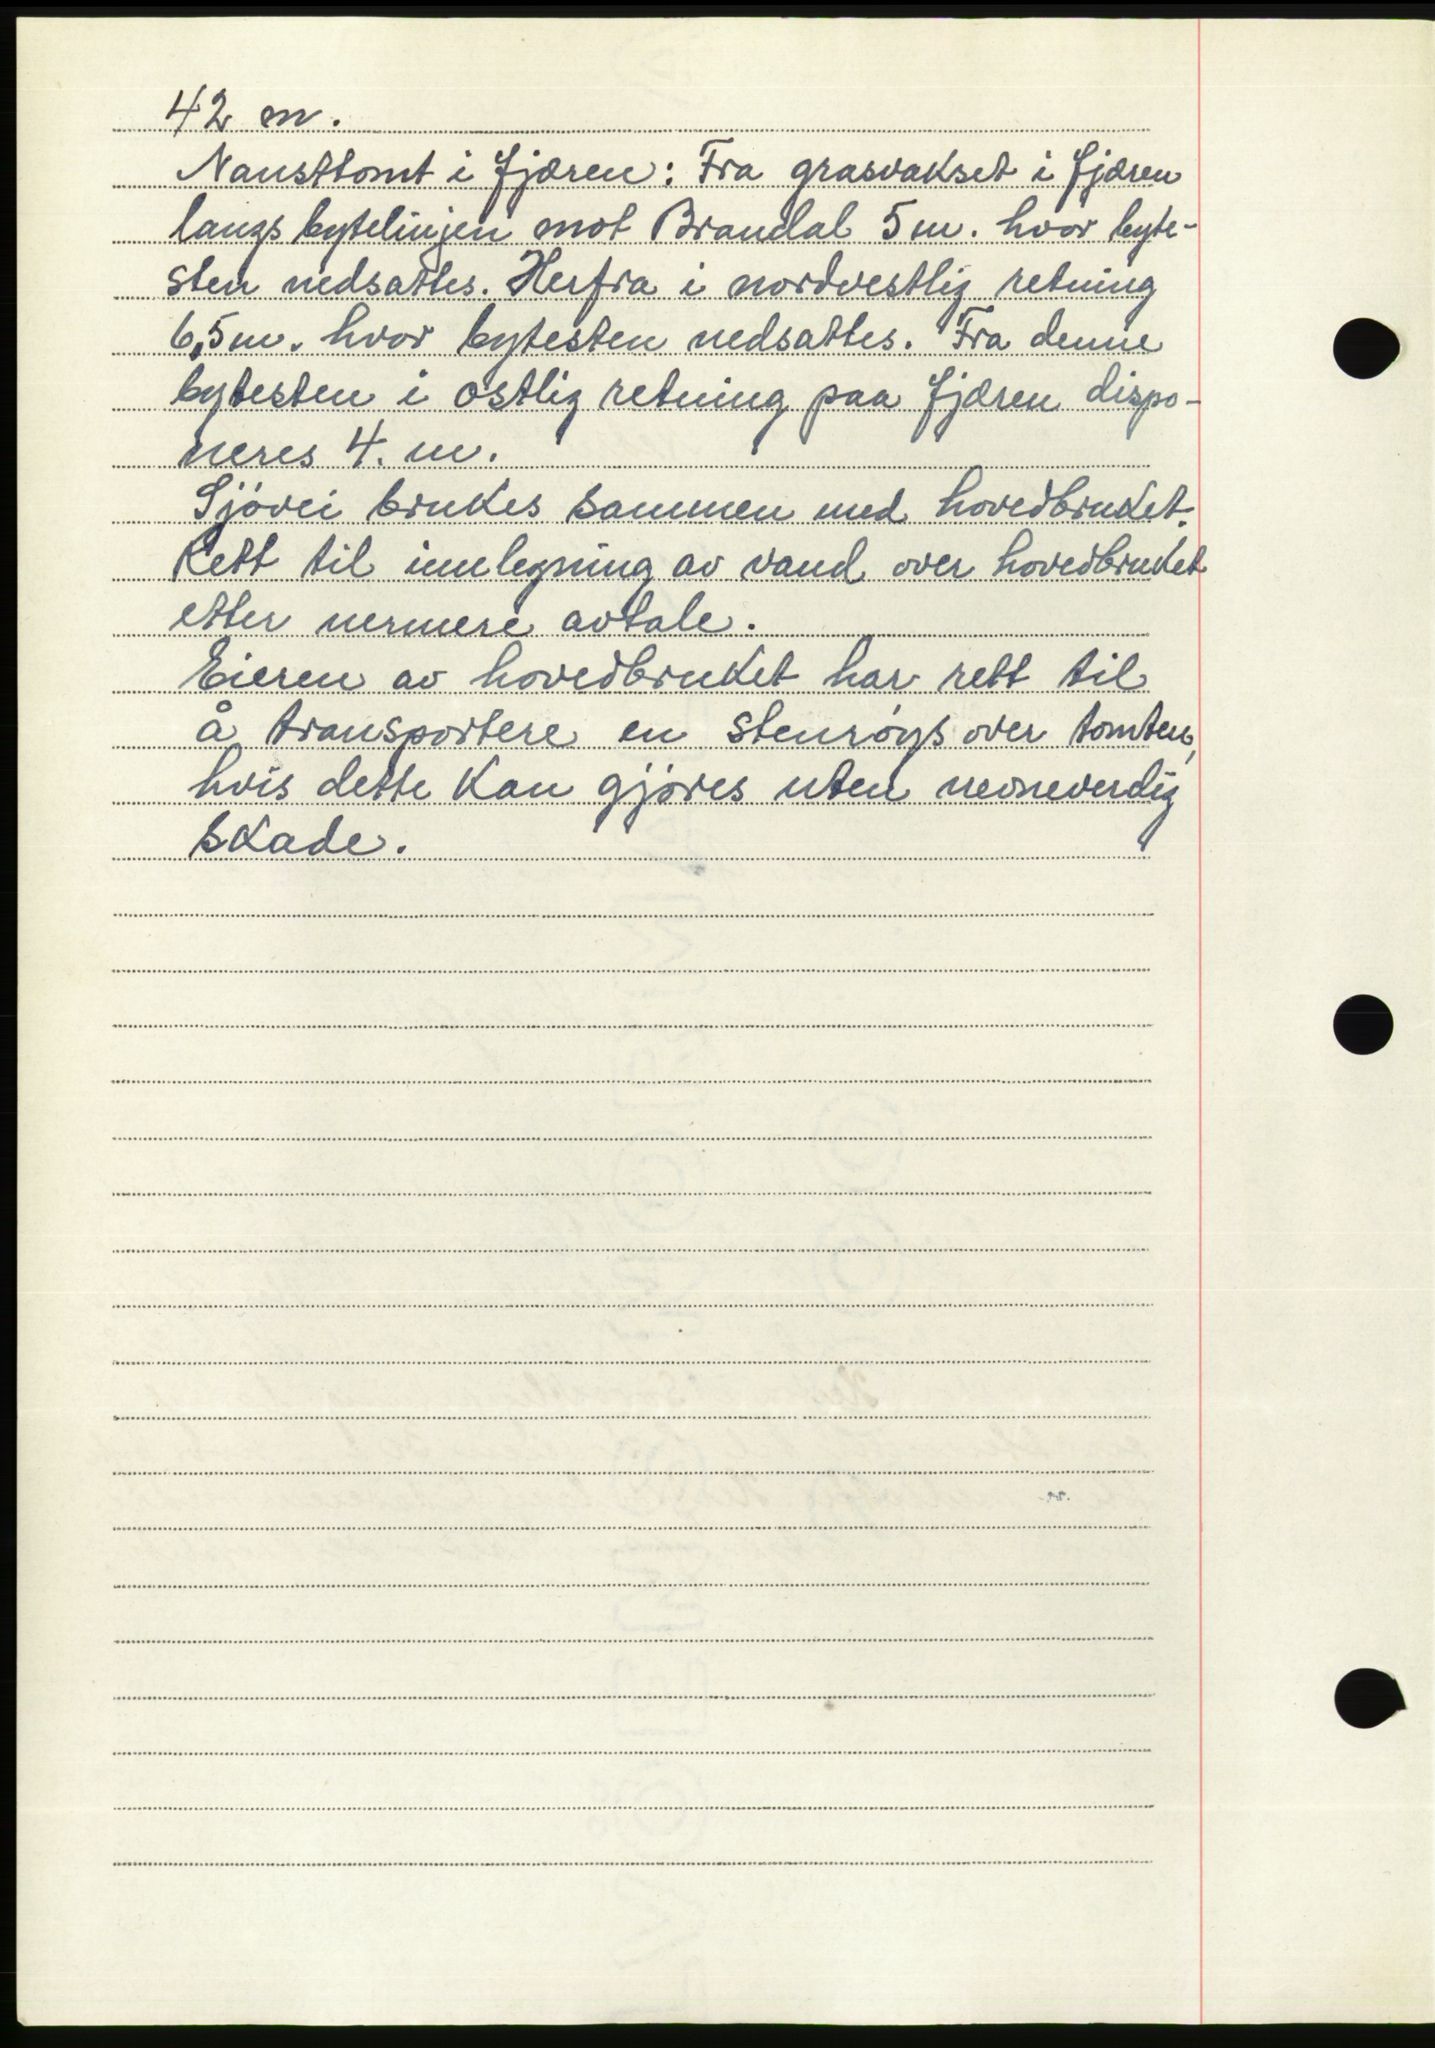 42 m.
Nausttomt i fjæren: Fra grasvakset i fjæren
langs bytelinjen mot Brandal 5 m. hvor byte-
sten nedsattes. Herfra i nordvestlig retning
6,5 m. hvor bytesten nedsattes. Fra denne
bytesten i ostlig retning paa fjæren dispo-
neres 4. m.
Sjövei brukes sammen med hovedbruket.
Rett til innlegning av vand over hovedbruket
etter nermere avtale.
Eieren av hovedbruket har rett til
å transportere en stenröys over tomten,
hvis dette kan gjöres uten nevneverdig
skade.